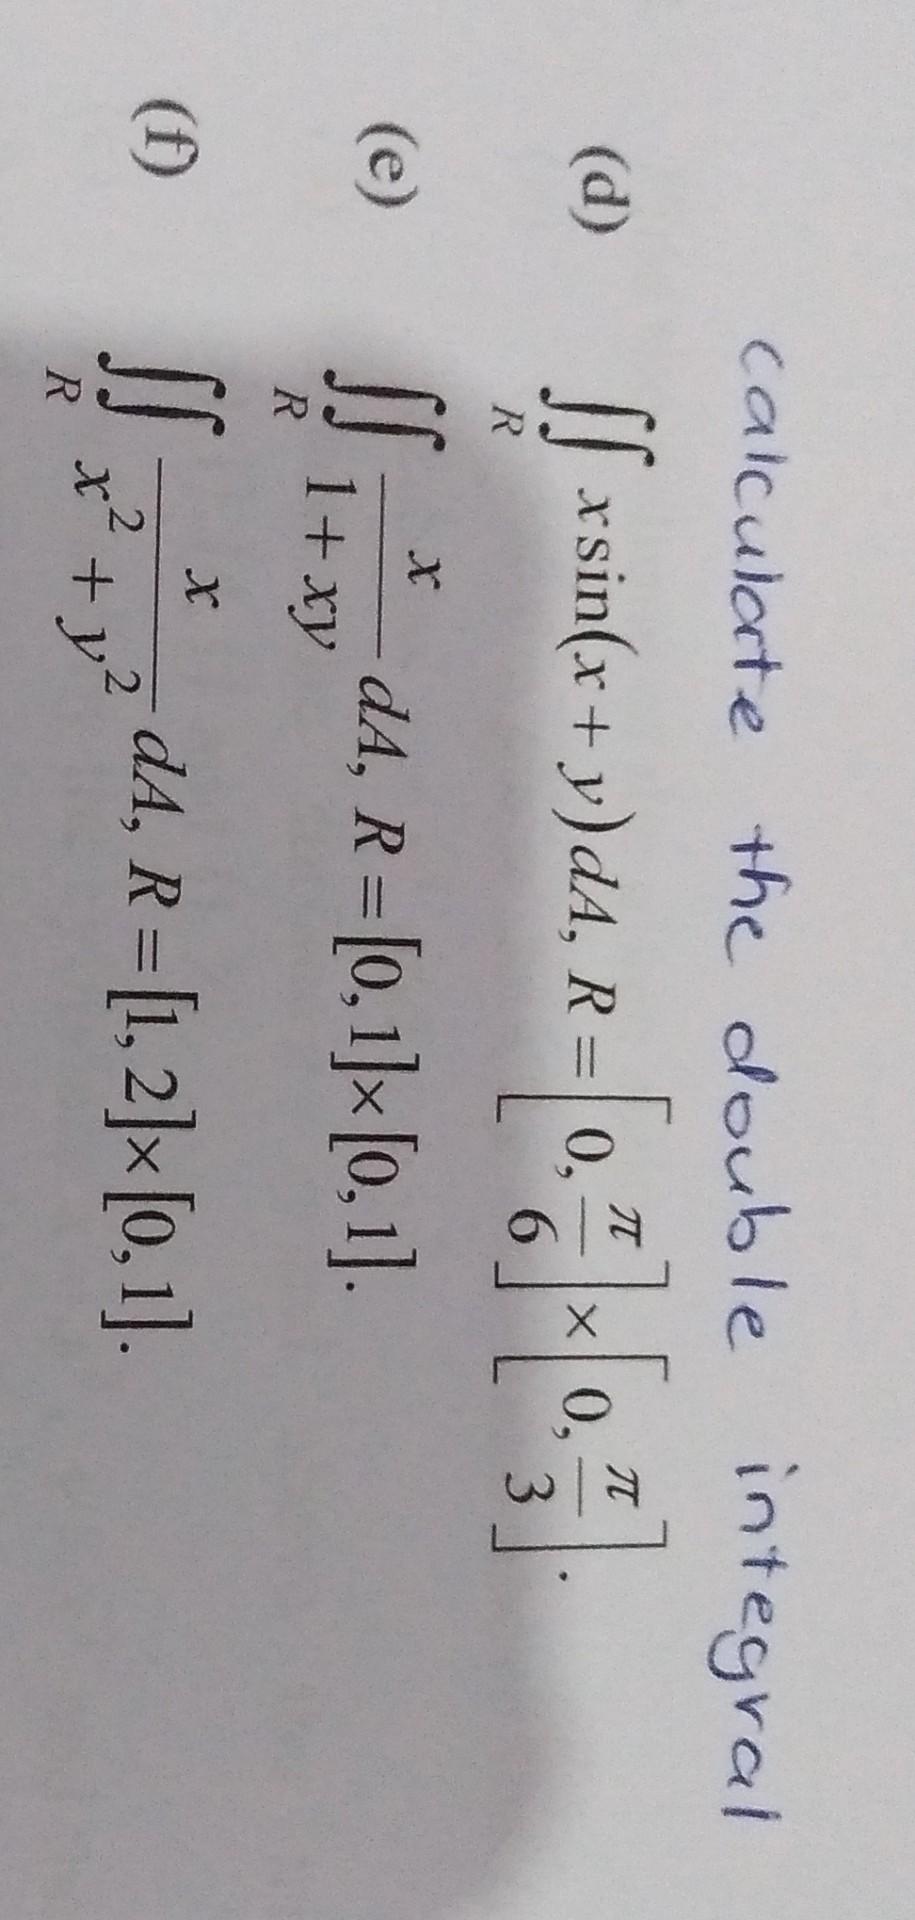 calcularte the double integral
(d) ∬_R x sin(x + y) dA, R = [0, π/6] × [0, π/3].
(e) ∬_R x/(1 + xy) dA, R = [0, 1] × [0, 1].
(f) ∬_R x/(x² + y²) dA, R = [1, 2] × [0, 1].